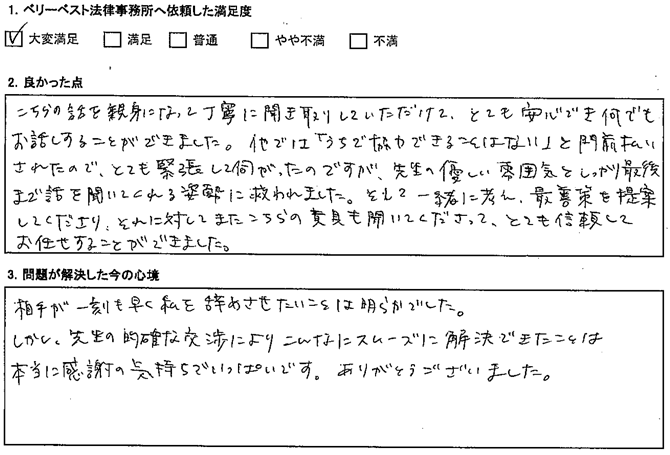 1. ベリーベスト法律事務所へ依頼した満足度
大変満足 満足 普通 やや不満 不満
2. 良かった点
こちらの話を親身になって丁寧に聞き取りしていただけて、とても安心でき何でも
お話しすることができました。他では「うちで協力できることはない」と門前払い
されたので、とても緊張して伺がったのですが、先生の優しい雰囲気としっかり最後
まで話を聞いてくれる姿勢に救われました。そして一緒に考え、最善策を提案
してくださり、それに対してまたこちらの意見も聞いてくださって、とても信頼して
お任せすることができました。
3. 問題が解決した今の心境
相手が一刻も早く私を辞めさせたいことは明らかでした。
しかし、先生の的確な交渉によりこんなにスムーズに解決できたことは
本当に感謝の気持ちでいっぱいです。ありがとうございました。